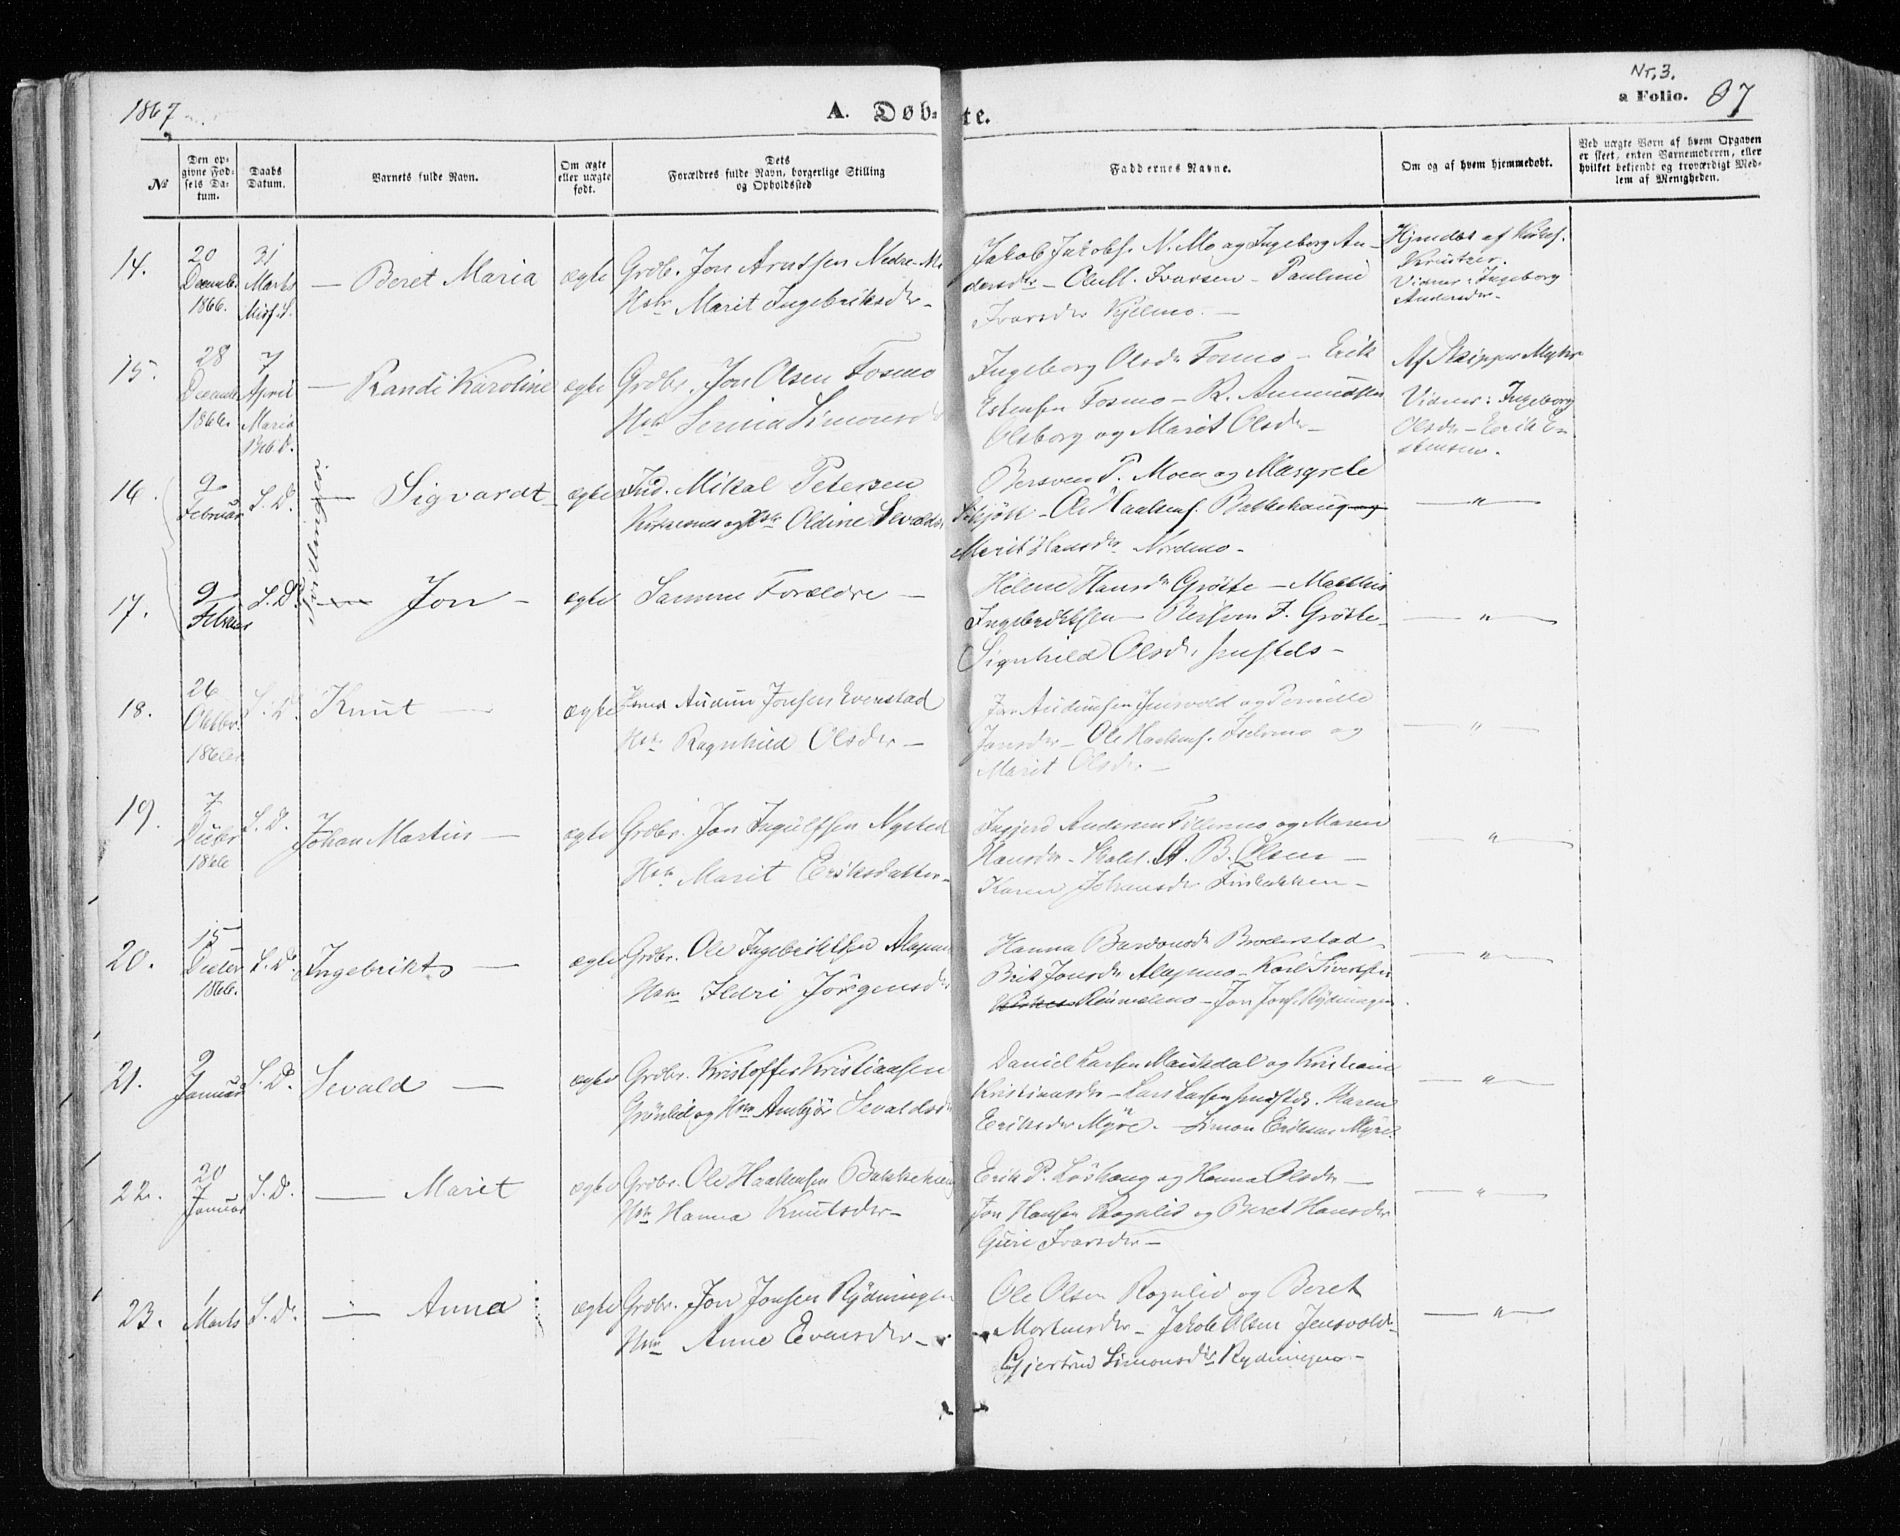 1867
A. Døbte.
Nr. 3.
a Folio. 87
№
Den opgivne Fødsels Datum.
Daabs Datum.
Barnets fulde Navn.
Om ægte eller uægte født.
Dets Forældres fulde Navn, borgerlige Stilling og Opholdssted
Faddernes Navne.
Om og af hvem hjemmedøbt.
Ved uægte Børn af hvem Opgaven er skeet, enten Barnemoderen, eller hvilket bekjendt og troværdigt Medlem af Menigheden.
14.
20 Decemb. 1866.
31 Marts
— Beret Maria
ægte
Grdbr. Jon Arntsen Nedre-Mo
Hstr Marit Ingebriktsdr —
Jakob Jakobs. N. Mo og Ingeborg An-
dersdr — Ole M. Ivarsen — Pauline
Ivarsdr Kjelmo. —
Hjmdøbt af
Vidner: Ingeborg
Andersdr —
15.
28 Decemb 1866.
7 April Mariæ Beb. D.
— Randi Karoline
ægte
Grdbr. Jon Olsen Fosmo
Hstr Simonsdr
Ingeborg Olsdr Fosmo — Erik
Estensen Fosmo — R. Amundsen
Olsborg og Marit Olsdr —
Af Skipper
Vidner: Ingeborg
Olsdr — Erik E-
stensen.
Tvillinger
16.
9 Februar
S. D.
— Sigvardt
ægte
Ind. Mikal Petersen
og Hstr Oldine Sevaldsdr
Bersven P. Moen og Masgrete
— Ole Haakens. Bakkehaug og
Marit Hansdr Nordmo —
— " —
17.
9 Februar
S. D.
— Jon —
ægte
Samme Forældre —
Helene Hansdr Grøtte — Matthis
Ingebriktsen — F. Grøtte —
Signhild Olsdr
— " —
18.
26 Oktbr. 1866.
S. D.
Knut —
ægte
Audun Jonsen Evenstad
Hstr Ragnhild Olsdr —
Jon Audunsen Jensvold og Pernille
Jonsdr — Ole Haakens. og
Marit Olsdr —
— " —
19.
7 Decbr 1866
S. D.
Johan Martin —
ægte
Grdbr. Jon Ingulfsen Nysted
Hstr Marit Eriksdatter —
Andersen og Maren
Hansdr — B. Olsen —
Karen Johansdr Finbakken —
— " —
20.
15 Decbr 1866.
S. D.
Ingebrikt —
ægte
Grdbr. Ole Ingebriktsen Alapmo
Hstr Ildri Jørgensdr
Hanna Bardonsdr Broderstad
Brit Jonsdr Alapmo — Karl Sivertsen
— Jon Jons. Rydningen.
— " —
21.
9 Januar
S. D.
Sevald —
ægte
Grdbr. Kristoffer Kristiansen
Grønlid og Hstr Ambjør Sevaldsdr
Daniel Larsen Maukdal og Kristiane
Kristiansdr — Lars Larsen . Karen
Eriksdr Myre. — Simon Eriksen Myre.
— " —
22.
20 Januar
S. D.
— Marit
ægte
Grdbr. Ole Haakensen Bakkehaug
Hstr Hanna Knutsdr —
Erik P. Løvhaug og Hanna Olsdr —
Jon Hansen Rognlid og Beret Hansdr
Guri Ivarsdr —
— " —
23.
1 Marts
S. D.
— Anna
ægte
Grdbr. Jon Jonsen Rydningen
Hstr Anne Evensdr —
Ole Olsen Rognlid og Beret
Mortensdr — Jakob Olsen Jensvold —
Gjertrud Simonsdr Rydningen —
— " —